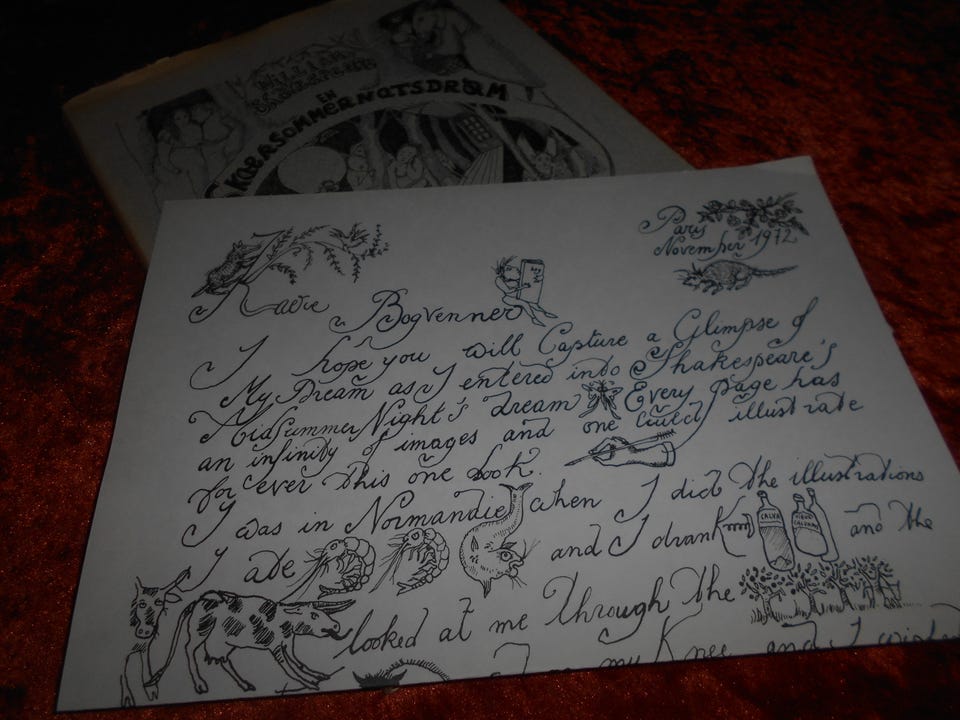 WILLIAM
SHAKESPEARE
EN
SKÆRSOMMERNATSDRØM
Paris
November 1972
Kære Bogvenner
I hope you will Capture a Glimpse of
My Dream as I entered into Shakespeare's
MidsummerNight's dream Every page has
an infinity of images and one could illustrate
for ever this one book.
I was in Normandie when I did the illustrations
I ate and I drank CALVA VIEUX CALVADOS and the
looked at me through the
my Knee and I